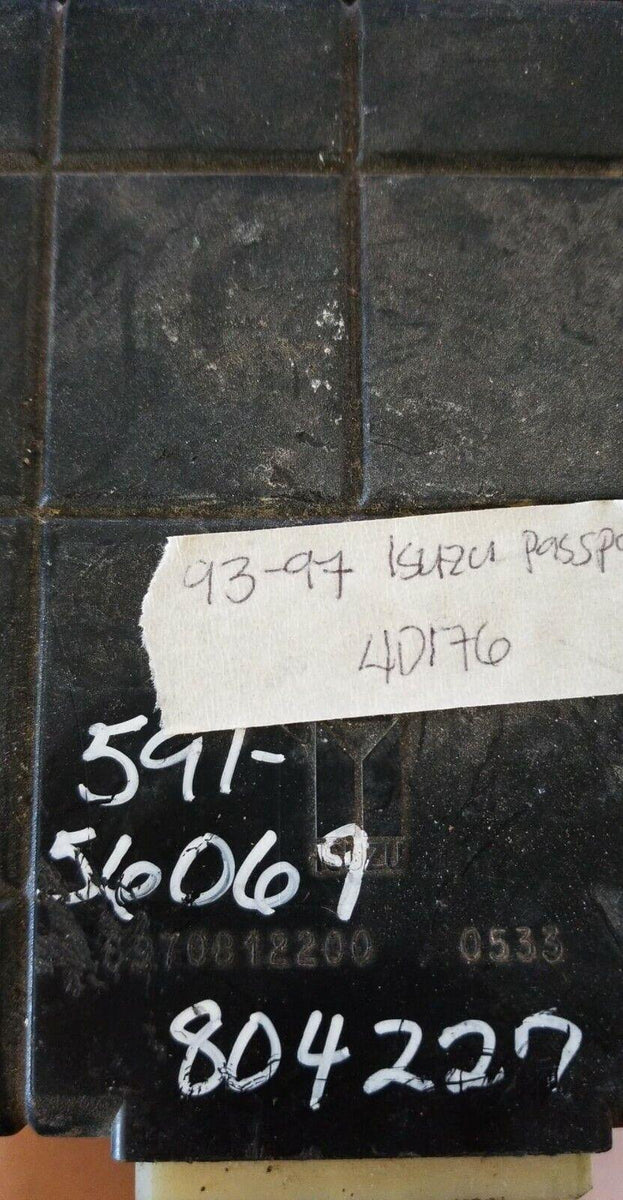 93-97 ISUZU Passpo
4D176
591-
56069
ISUZU
8970812200 0533
804227